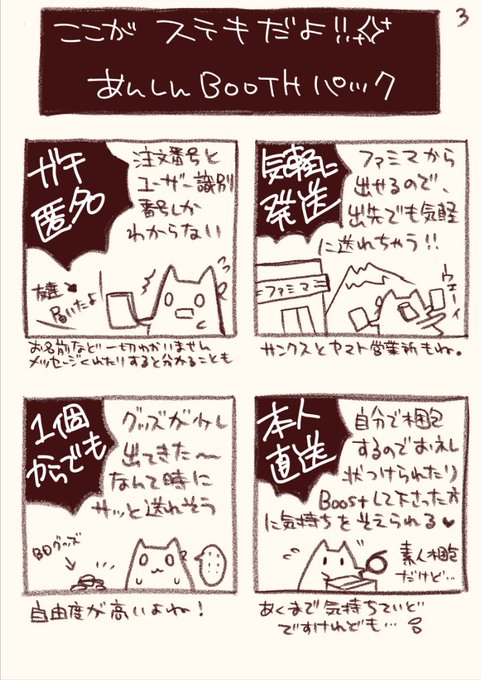 3
ここが ステキだよ!!
あんしんBOOTHパック
ガチ
匿名
注文番号と
ユーザー識別
番号しか
わからない
友達
届いたよ!
お名前など一切わかいません
メッセージくれたりすると分かることも
気軽に
発送
ファミマから
出せるので、
出先でも気軽
に送れちゃう!!
ファミマ
ウェーイ
サンクスとヤマト営業所もね。
1個
からでも
グッズが少し
出てきた〜
なんて時に
サッと送れそう
BDグッズ
自由度が高いよね!
本人
直送
自分で梱包
するのでお礼
状つけられたり
Boostして下さった方
に気持ちを添えられる♥
素人梱包
だけど…
あくまで気持ちていど
ですけれども…